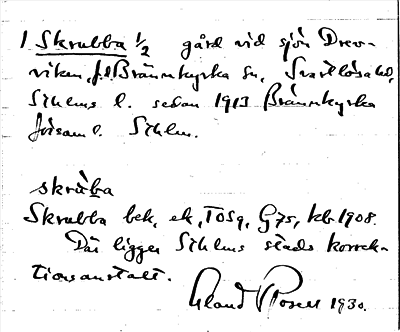 1. Skrubba 1/2 gård vid sjön Drev-
viken, f.d. Brännkyrka sn, Svartlösa hd,
Sthlms l. sedan 1913 Brännkyrka
församl. Sthlm.
skrùba
Skrubba bek, ek, TOSq, G75, kb 1908.
Där ligger Sthlms stads korrek-
tionsanstalt.
1930.